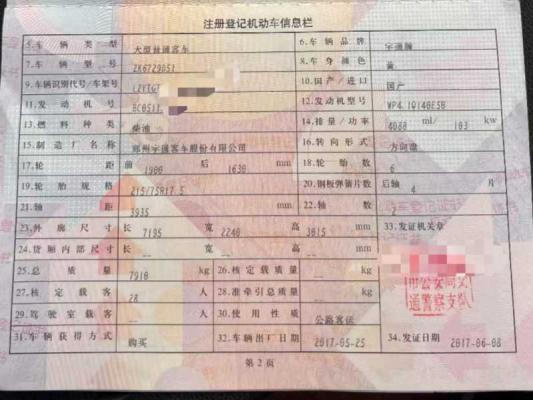 注册登记机动车信息栏
5.车辆类型 大型普通客车 6.车辆品牌 宇通牌
7.车辆型号 ZK6729D51 8.车身颜色 黄
9.车辆识别代号/车架号 10.国产/进口 国产
11.发动机号 12.发动机型号 WP4.1Q140E50
13.燃料种类 柴油 14.排量/功率 4088 ml/ 103 kw
15.制造厂名称 郑州宇通客车股份有限公司 16.转向形式 方向盘
17.轮距 前 1900 后 1630 mm 18.轮胎数 6
19.轮胎规格 215/75R17.5 20.钢板弹簧片数 后轴 4 片
21.轴距 3935 mm 22.轴数 2
23.外廓尺寸 长 7195 宽 2240 高 3015 mm 33.发证机关章
24.货厢内部尺寸 长 -- 宽 -- 高 -- mm
25.总质量 7910 kg 26.核定载质量 -- kg
27.核定载客 28 人 28.准牵引总质量 -- kg
市公安局交
通警察支队
29.驾驶室载客 -- 人 30.使用性质 公路客运
31.车辆获得方式 购买 32.车辆出厂日期 2017-05-25 34.发证日期 2017-06-08
第2页